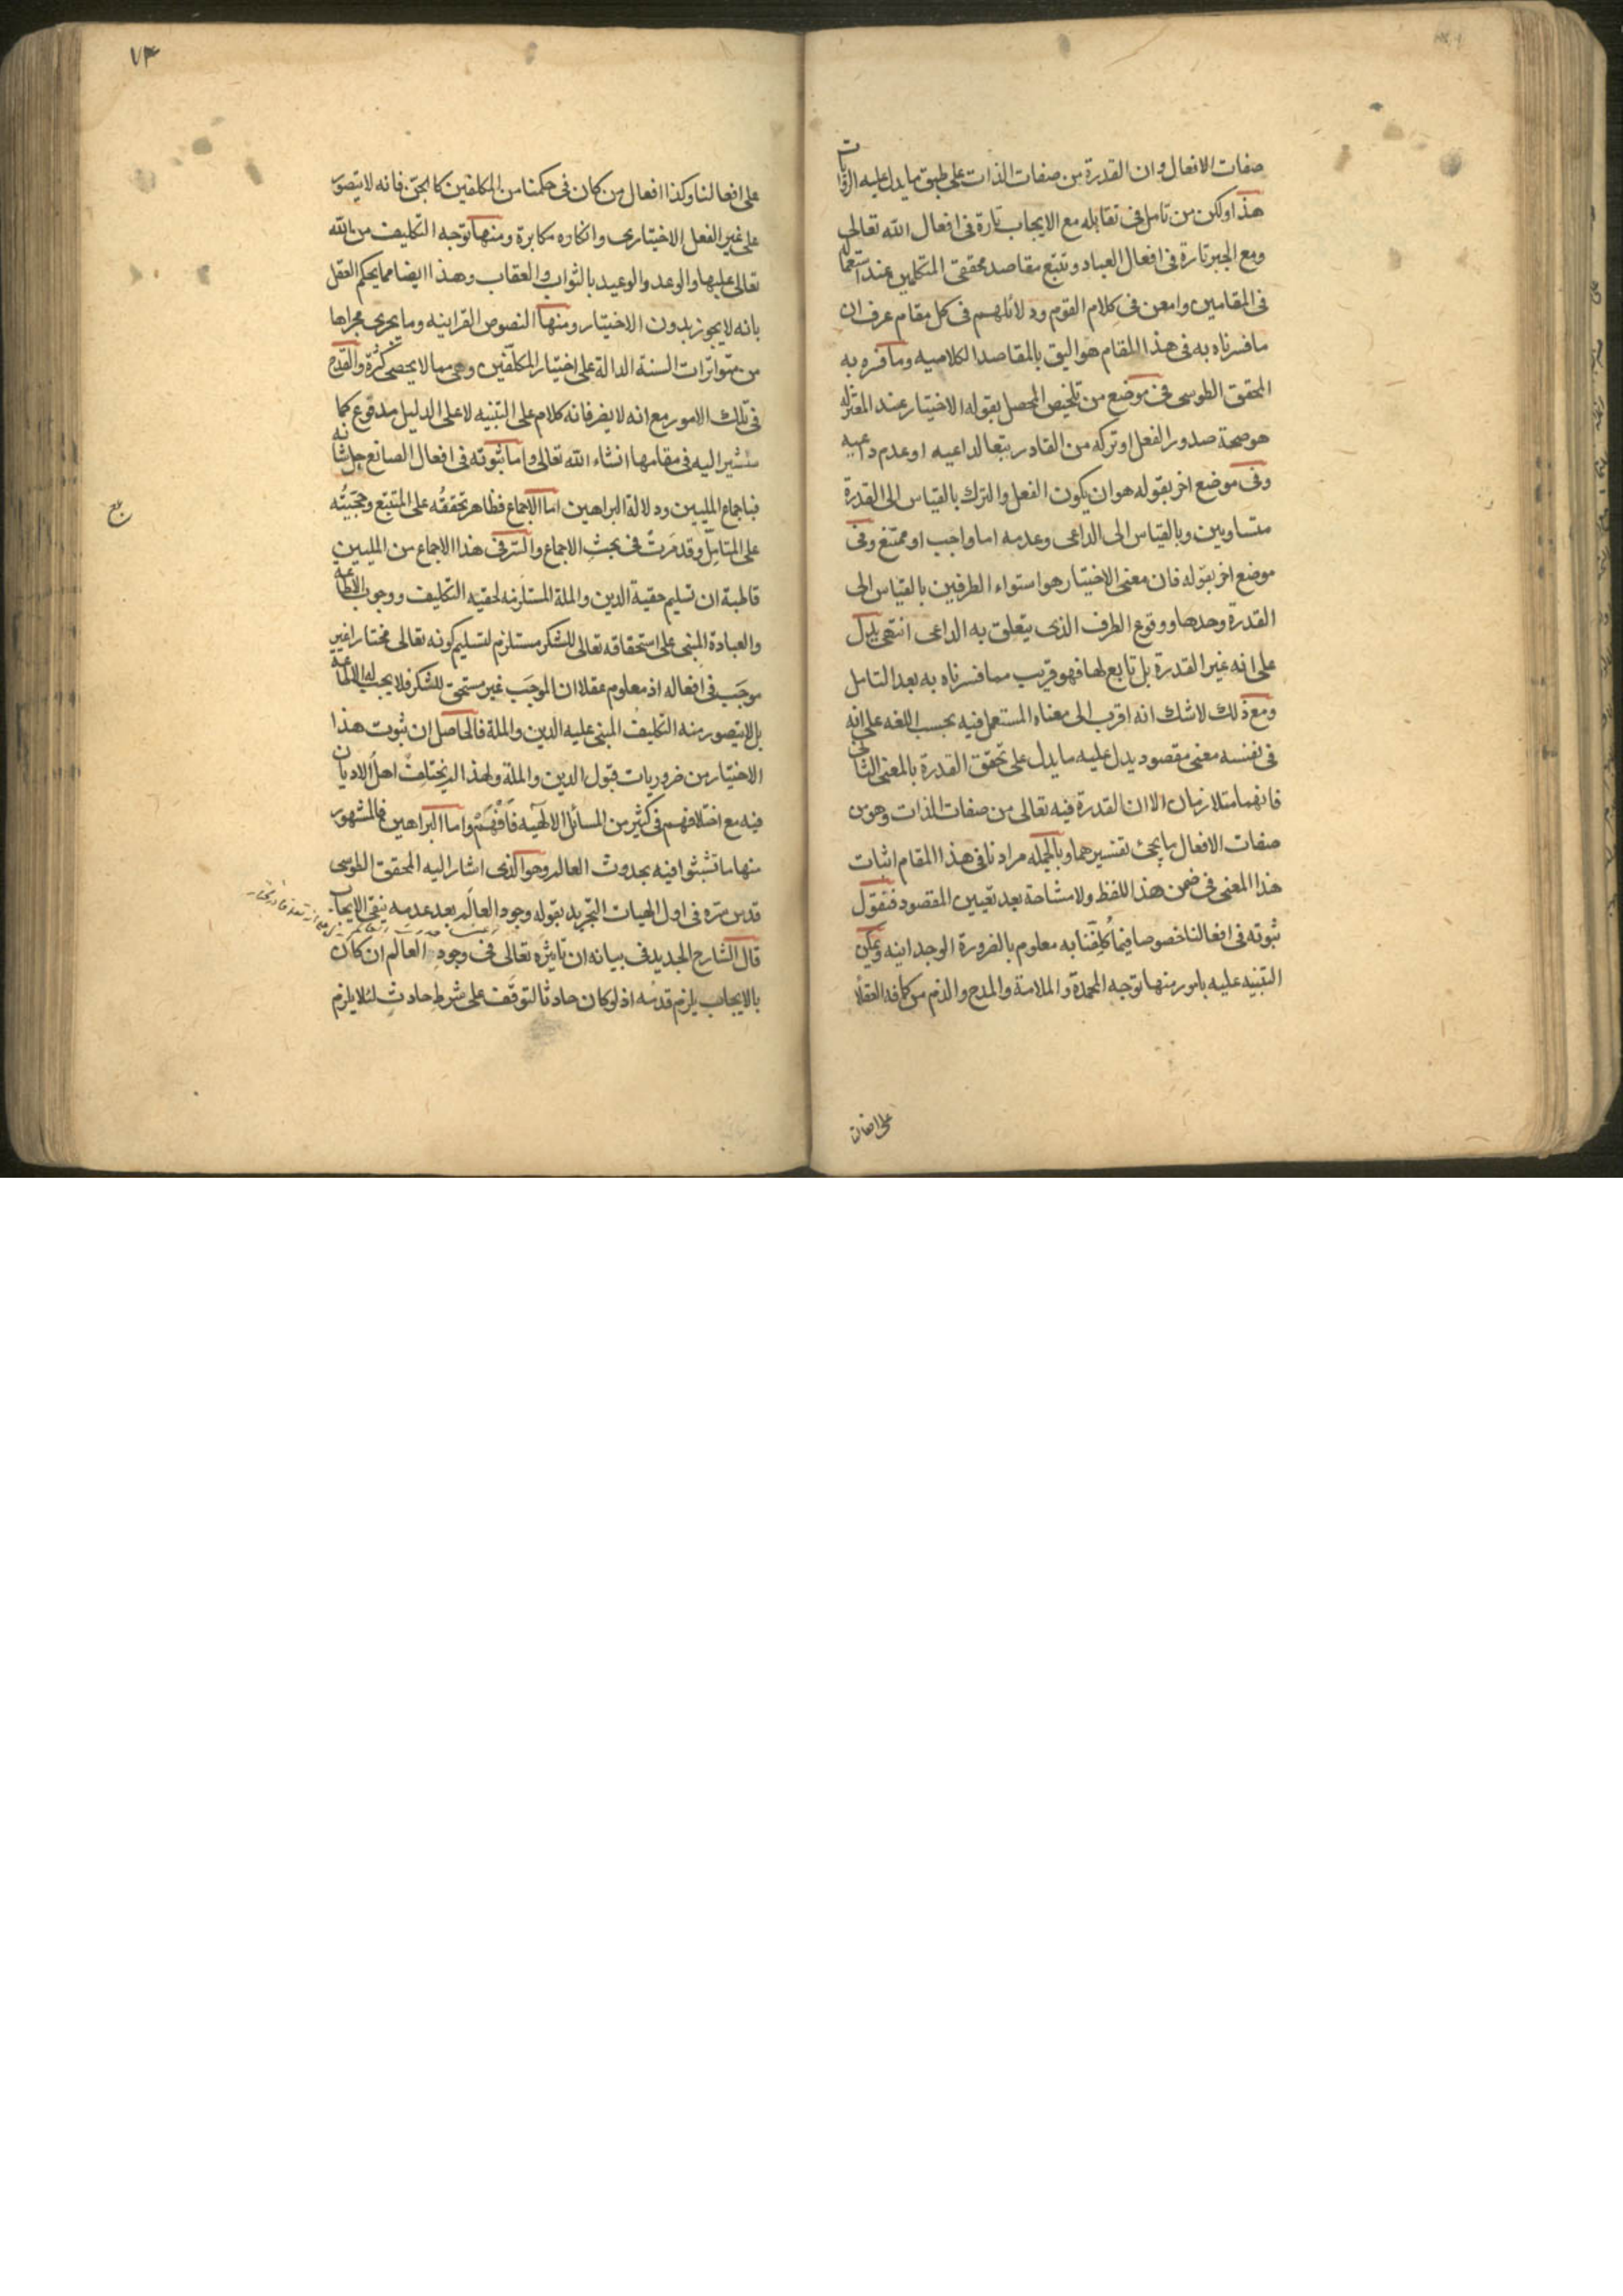 صفات الافعال وان القدرة من صفات الذات على طبق ما يدل عليه الروايات
هذا ولكن من تامل في تقابله مع الايجاب تارة في افعال الله تعالى
ومع الجبر تارة في افعال العباد وتتبع مقاصد محققى المتكلمين عند استعماله
في المقامين وامعن في كلام القوم ودلائلهم في كل مقام عرف ان
ما فسرناه به في هذا المقام هو اليق بالمقاصد الكلاميه وما فسره به
المحقق الطوسى في موضع من تلخيص المحصل بقوله الاختيار عند المعتزله
هو صحة صدور الفعل او تركه من القادر تبعا لداعيه او عدم داعيه
وفى موضع اخر بقوله هو ان يكون الفعل والترك بالقياس الى القدرة
متساويين وبالقياس الى الداعى وعدمه اما واجب او ممتنع وفى
موضع اخر بقوله فان معنى الاختيار هو استواء الطرفين بالقياس الى
القدرة وحدها ووقوع الطرف الذى يتعلق به الداعى انتهى يدل
على انه غير القدرة بل تابع لها فهو قريب مما فسرناه به بعد التامل
ومع ذلك لاشك انه اقرب الى معناه المستعمل فيه بحسب اللغه على انه
في نفسه معنى مقصود يدل عليه ما يدل على تحقق القدرة بالمعنى الثانى
فانهما متلازمان الا ان القدرة فيه تعالى من صفات الذات وهو من
صفات الافعال ما يجئ تفسيرهما وبالجمله مرادنا في هذا المقام اثبات
هذا المعنى في ضمن هذا اللفظ ولا مشاحة بعد تعيين المقصود فنقول
ثبوته في افعالنا خصوصا فيما كُلِفّنا به معلوم بالضرورة الوجدانيه ويمكن
التنبيه عليه بامور منها توجه المحمدة والملامة والمدح والذم من كافه العقلا
على افعالنا
٧٣
على افعالنا وكذا افعال من كان في حكمنا من المكلفين كالجنّ فانه لا يتصور
على غير الفعل الاختيارى وانكاره مكابرة ومنها توجه التكليف من الله
تعالى عليها والوعد والوعيد بالثواب والعقاب وهذا ايضا مما يحكم العقل
بانه لا يجوز بدون الاختيار ومنها النصوص القرانيه وما يجرى مجراها
من متواترات السنة الدالة على اختيار المكلّفين وهى مما لا يحصى كثرة والقدح
في تلك الامور مع انه لا يضر فانه كلام على التنبيه لا على الدليل مدفوع كما
سنشير اليه في مقامها انشاء الله تعالى واما ثبوته في افعال الصانع جل شانه
فباجماع المليين ودلالة البراهين اما الاجماع فظاهر تحققُه على المتتبع وحجيتُه
على المتامّل وقد مرّت في بحث الاجماع والسّر في هذا الاجماع من المليين
قاطبة ان تسليم حقية الدين والملة المستلزمه لحقيه التكليف ووجوب الاطاعه
والعبادة المبنى على استحقاقه تعالى للشكر مستلزم لتسليم كونه تعالى مختارا غير
موجَب في افعاله اذ معلوم عقلا ان الموجَب غير مستحق للشكر فلا يجب له الاطاعه
بل لا يتصور منه التكليف المبنى عليه الدين والملة فالحاصل ان ثبوت هذا
الاختيار من ضروريات قبول الدين والملة ولهذا لم يختلف اهلُ الاديان
فيه مع اختلافهم في كثير من المسائل الالٓهيه فَافْهَمْ واما البراهين فالمشهور
منها ما تشبثوا فيه بحدوث العالم وهو الذى اشار اليه المحقق الطوسى
قدس سره في اول الهيات التجريد بقوله وجود العالَم بعد عدمه ينفى الايجاب
قال الشارح الجديد في بيانه ان تاثيرَه تعالى في وجودِ العالم ان كان
بالايجاب يلزم قدمُه اذ لو كان حادثا لتوقّف على شرطٍ حادثٍ لئلا يلزم